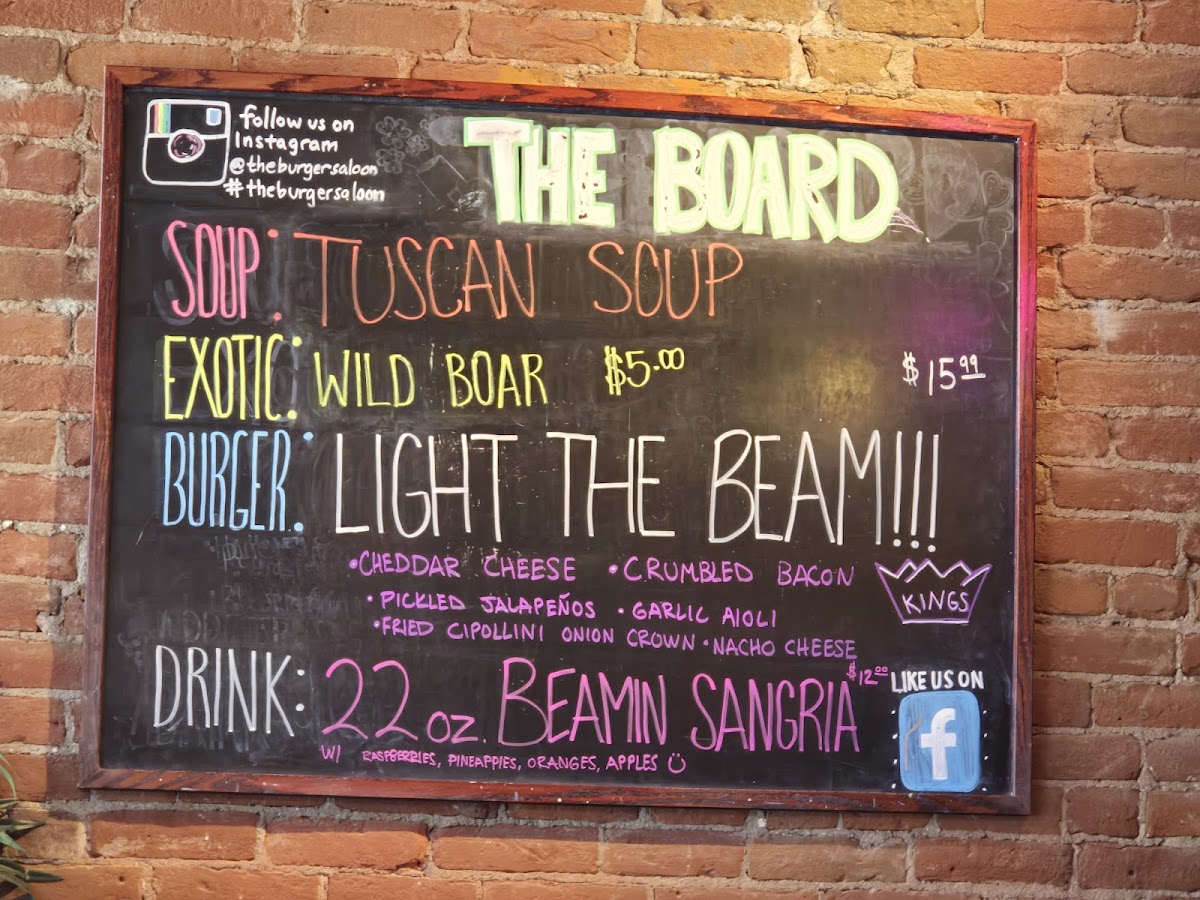 follow us on
Instagram
@theburgersaloon
#theburgersaloon
THE BOARD
SOUP: TUSCAN SOUP
EXOTIC: WILD BOAR $5.00 $15.99
BURGER: LIGHT THE BEAM!!!
•CHEDDAR CHEESE •CRUMBLED BACON
•PICKLED JALAPEÑOS •GARLIC AIOLI
•FRIED CIPOLLINI ONION CROWN •NACHO CHEESE
KINGS
DRINK: 22 oz. BEAMIN SANGRIA $12.00
W/ RASPBERRIES, PINEAPPLES, ORANGES, APPLES
LIKE US ON
f